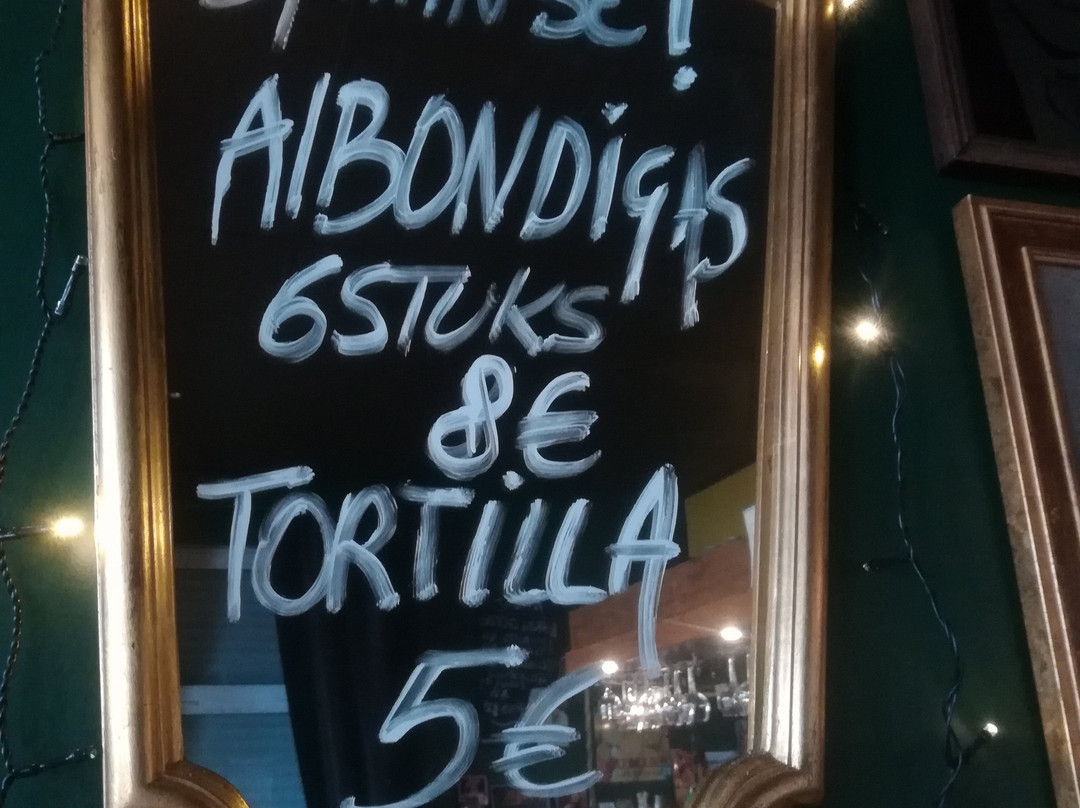 AlBONDiGAS
6 STUKS
8 €
TORTiLLA
5 €